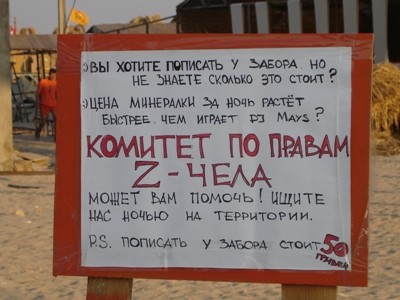 1) ВЫ ХОТИТЕ ПОПИСАТЬ У ЗАБОРА, НО
НЕ ЗНАЕТЕ СКОЛЬКО ЭТО СТОИТ?
2) ЦЕНА МИНЕРАЛКИ ЗА НОЧЬ РАСТЁТ
БЫСТРЕЕ, ЧЕМ ИГРАЕТ DJ MAYS?
КОМИТЕТ ПО ПРАВАМ
Z - ЧЕЛА
МОЖЕТ ВАМ ПОМОЧЬ! ИЩИТЕ
НАС НОЧЬЮ НА ТЕРРИТОРИИ.
P.S. ПОПИСАТЬ У ЗАБОРА СТОИТ 50
ГРИВЕН